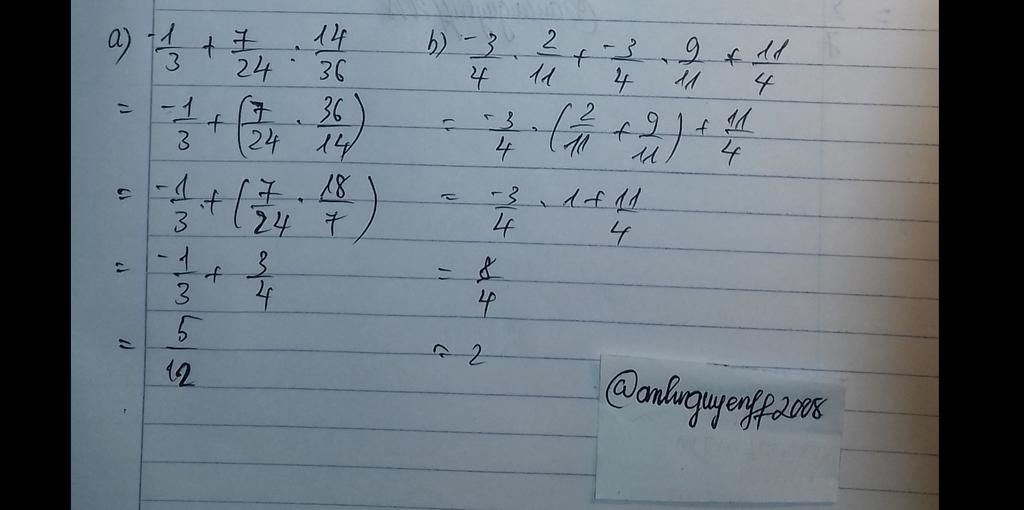 a) -1/3 + 7/24 : 14/36
= -1/3 + (7/24 · 36/14)
= -1/3 + (7/24 · 18/7)
= -1/3 + 3/4
= 5/12
b) -3/4 · 2/11 + -3/4 · 9/11 + 11/4
= -3/4 · (2/11 + 9/11) + 11/4
= -3/4 · 1 + 11/4
= 8/4
= 2
@anhnguyenff2008